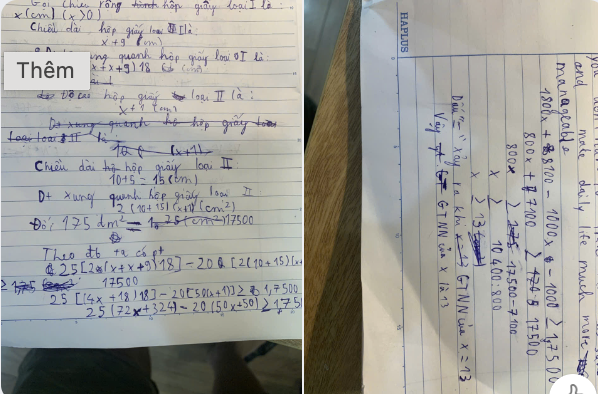 Gọi chiều rộng hộp giấy loại I là:
x (cm) (x > 0)
Chiều dài hộp giấy loại I là:
x + 9 (cm)
xung quanh hộp giấy loại I là
x + x + 9) 18 (cm²)
Thêm
hộp giấy loại II là:
hộp giấy
là:
(x+1)
Chiều dài hộp giấy loại II
10+5 = 15 (cm)
Dt xung quanh hộp giấy loại II
2 (10+15) (x+1) (cm²)
Đổi 175 dm² = 17500
Theo đb ta có pt
25 [2 (x+x+9) 18] - 20 [2(10+15)(x+
17500
25 [(4x + 18) 18] - 20 [50(x+1)] ≥ 1,7500
25 (72x + 324) - 20 (50x+50) ≥ 1,750
HAPLUS
and make daily life much more
manageable
1800x + 8100 - 1000x - 1000 ≥ 1,7500
800x + 7100 ≥ 17500
800x ≥ 17500 - 7100
x ≥ 10 400 : 800
x ≥ 13
Dấu "=" xảy ra khi x = 13 GTNN của x = 13
Vậy GTNN của x là 13